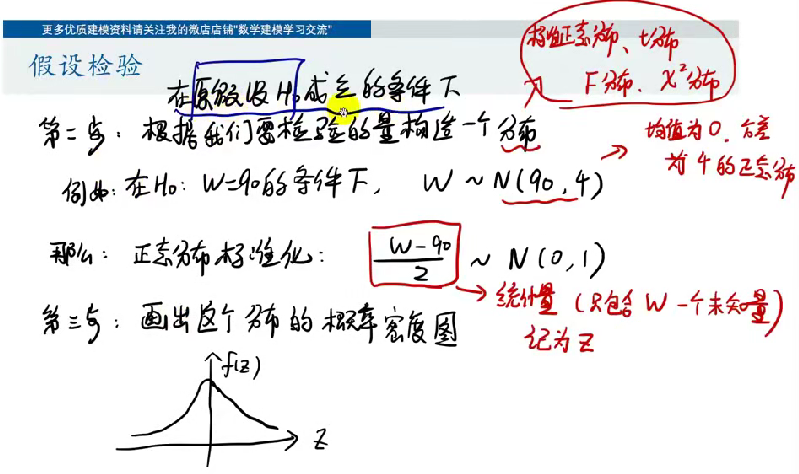 更多优质建模资料请关注我的微店店铺"数学建模学习交流"
假设检验
标准正态分布、t分布
F分布、χ²分布
在原假设H₀成立的条件下
第二步：根据我们要检验的量构造一个分布
均值为0，方差
为4的正态分布
例如：在H₀：W=90的条件下，W ~ N(90,4)
那么：正态分布标准化：(W-90)/2 ~ N(0,1)
统计量（只包含W一个未知量）
记为Z
第三步：画出这个分布的概率密度图
f(z)
Z